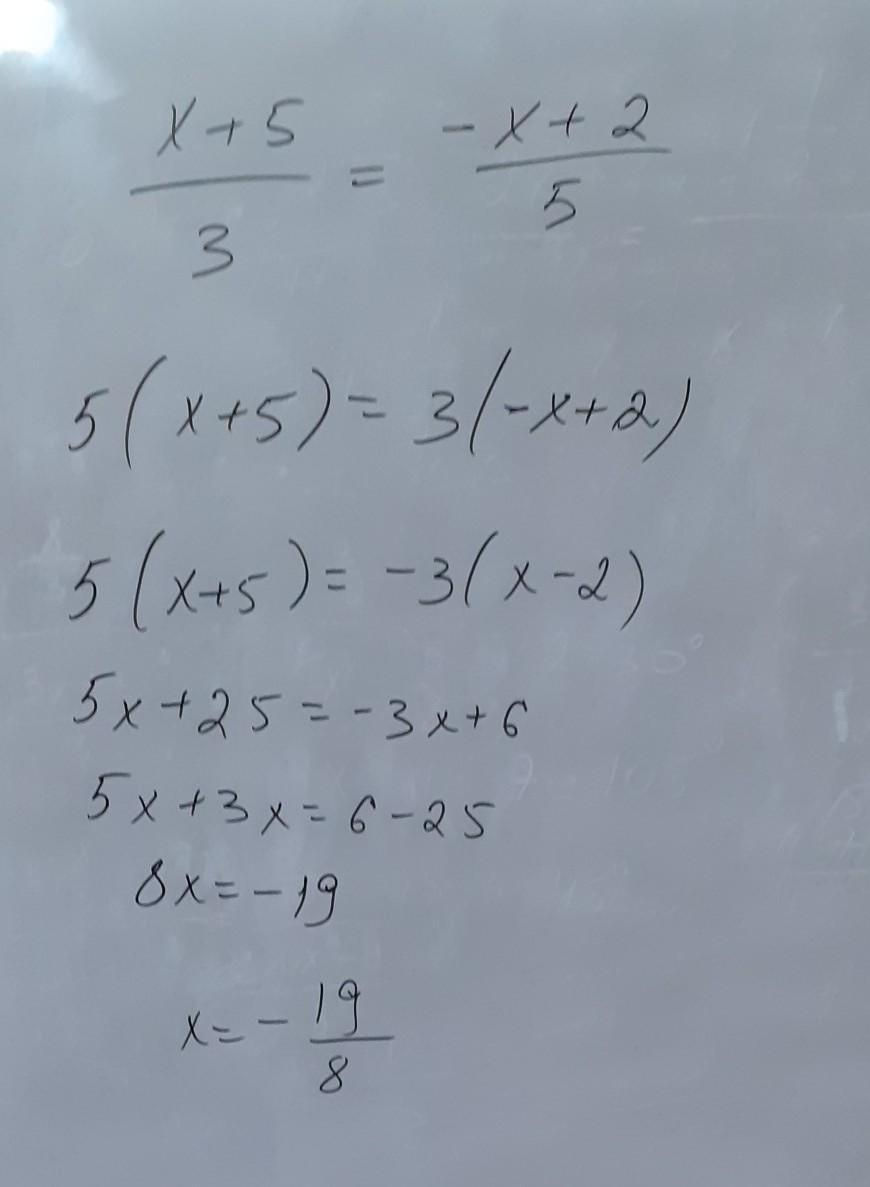 x+5/3 = -x+2/5
5(x+5)=3(-x+2)
5(x+5)=-3(x-2)
5x+25=-3x+6
5x+3x=6-25
8x=-19
x=-19/8